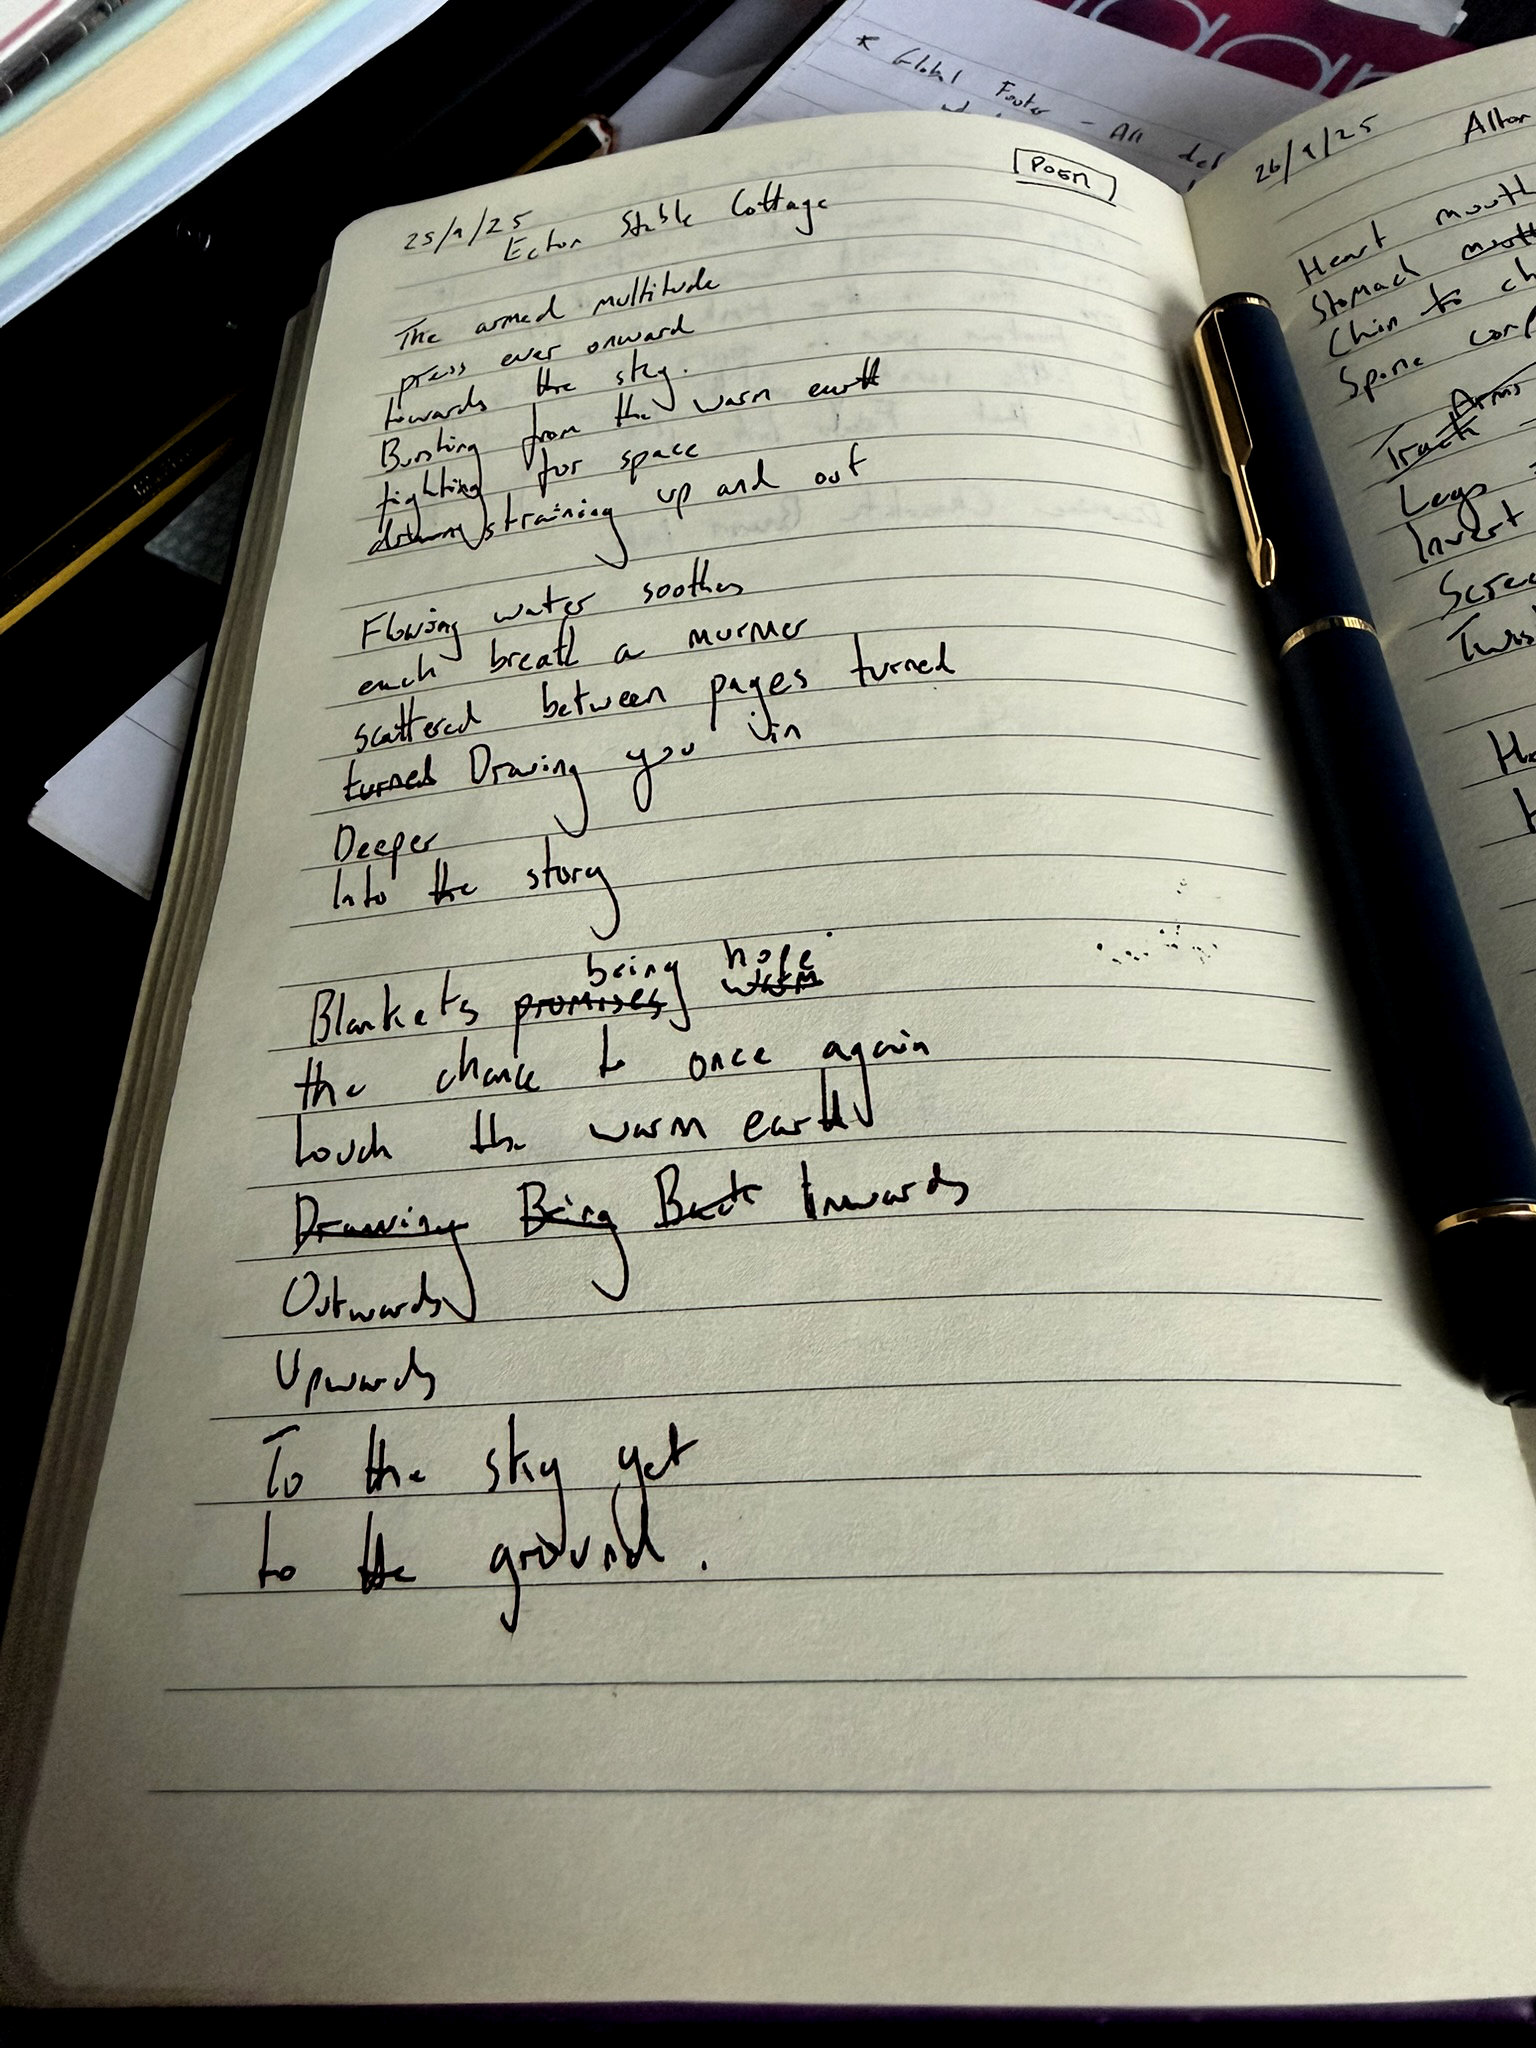 * Global Footer - All
POEM
25/9/25
Ecton Stable Cottage
The armed multitude
press ever onward
towards the sky.
Bursting from the warm earth
fighting for space
straining up and out
Flowing water soothes
each breath a murmer
scattered between pages turned
turned Drawing you in
Deeper
Into the story
being hope
Blankets promises warm
the chance to once again
touch the warm earth
Drawing Being Back Inwards
Outwards
Upwards
To the sky yet
to the ground.
26/9/25
Heart mouth
Stomach
Chin to
Arms
Legs
Invert